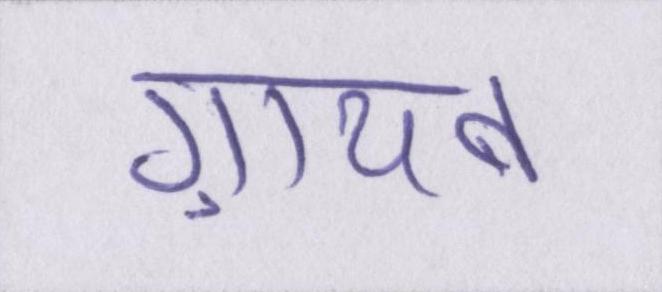 ग़ायब